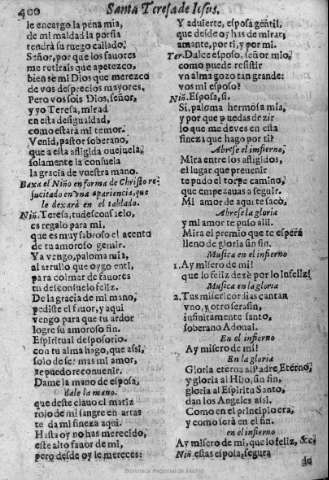 400
Santa Teresa de Iesus.
le encargo la pena mia,
de mi maldad la porfia
tendrá su ruego callado,
Señor, por que los fauores
me retirais que apetezco,
bien se mi Dios que merezco
de vos desprecios mayores.
Pero vos sois Dios, señor,
y yo Teresa, mirad
en esta desigualdad,
como estará mi temor.
Venid, pastor soberano,
que a esta afligida ouejuela,
solamente la consuela
la gracia de vuestra mano.
Baxa el Niño en forma de Christo re-
sucitado en vna apariencia, que
le dexará en el tablado.
Niñ. Teresa, tu desconsuelo,
es regalo para mi,
que es muy sabroso el acento
de tu amoroso gemir.
Ya vengo, paloma mia,
al arrullo que oygo enti,
para colmar de fauores
tu desconsuelo feliz.
De la gracia de mi mano,
pediste el fauor, y aqui
vengo para que tu ardor
logre su amoroso fin.
Espiritual desposorio
con tu alma hago, que assi,
solo desse mas mi amor,
se puedo reconuenir.
Dame la mano de esposa,
Dale la mano.
que deste clauo el matiz
rojo de mi sangre en arras
te da mi fineza aqui.
Hasta oy no has merecido,
este alto fauor de mi,
pero desde oy le mereces:
Y aduierte, esposa gentil,
que desde oy has de mirar,
amante, por ti, y por mi.
Ter. Dulce esposo, señor mio,
como puede resistir
vn alma gozo tan grande:
vos mi esposo?
Niñ. Esposa, si.
Si, paloma hermosa mia,
y por que puedas dezir
lo que me deves en esta
fineza que hago por ti?
Abrese el infierno,
Mira entre los afligidos,
el lugar que preuenir
te pudo el torpe camino,
que empezauas a seguir.
Mi amor de aqui te sacò,
Abrese la gloria
y mi amor te puso alli.
Mira el premio que te esperá
lleno de gloria sin fin.
Musica en el infierno
1. Ay misero de mi!
que lo feliz dexè por lo infeliz!
Musica en la gloria
2. Tus misericordias cantan
vno, y otro serafin,
infinitamente santo,
soberano Adonai.
En el infierno
Ay misero de mi!
En la gloria
Gloria eterna al Padre Eterno,
y gloria al Hijo, sin fin,
gloria al Espiritu Santo,
dan los Angeles assi.
Como en el principio era,
y como será en el fin
en el infierno
Ay misero de mi, que lo feliz, &c.
Niñ. estas esposa, segura
de
Biblioteca Regional de Madrid